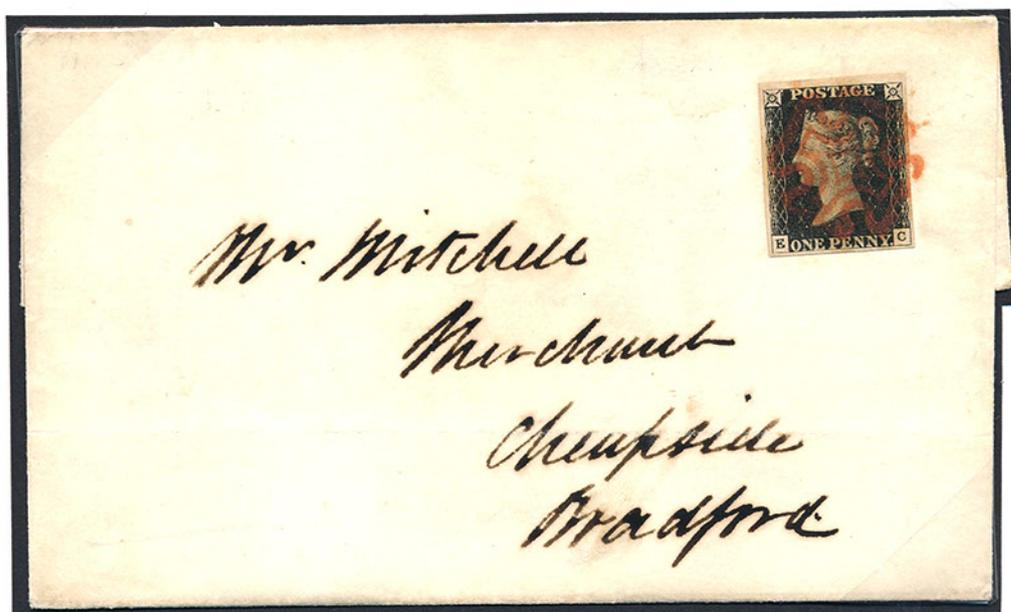 POSTAGE
E ONE PENNY C
Mr. Mitchell
Merchant
Cheapside
Bradford.